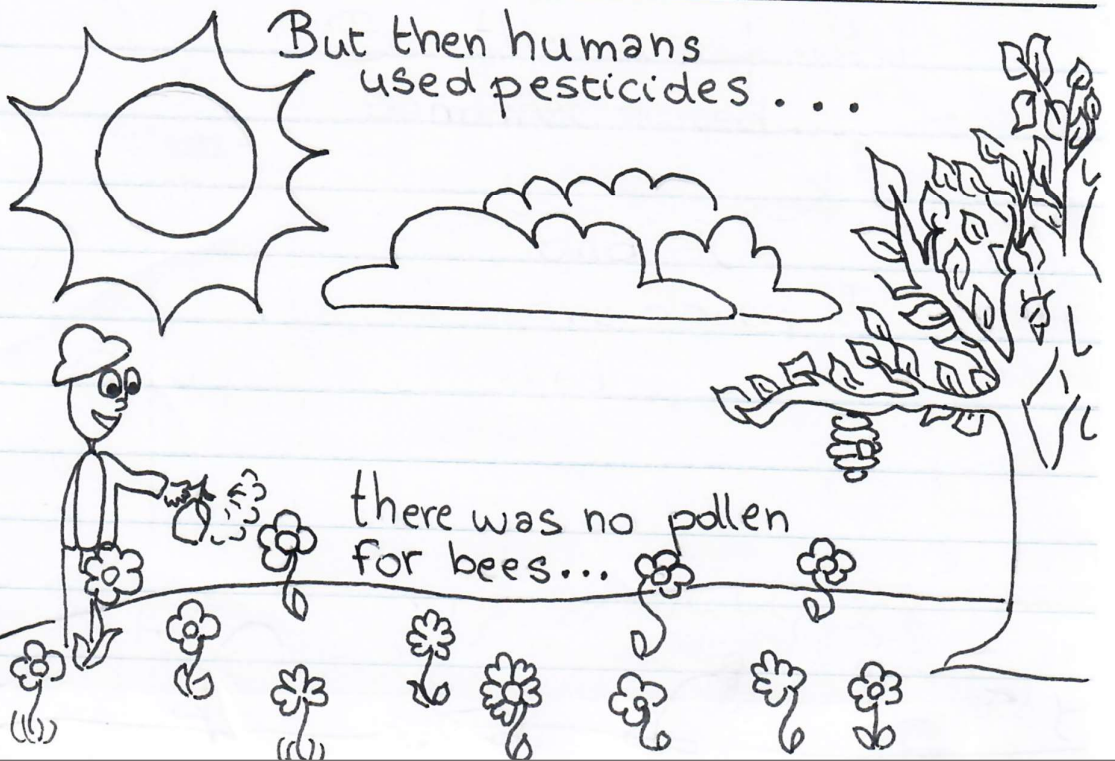 But then humans
used pesticides...
there was no pollen
for bees...